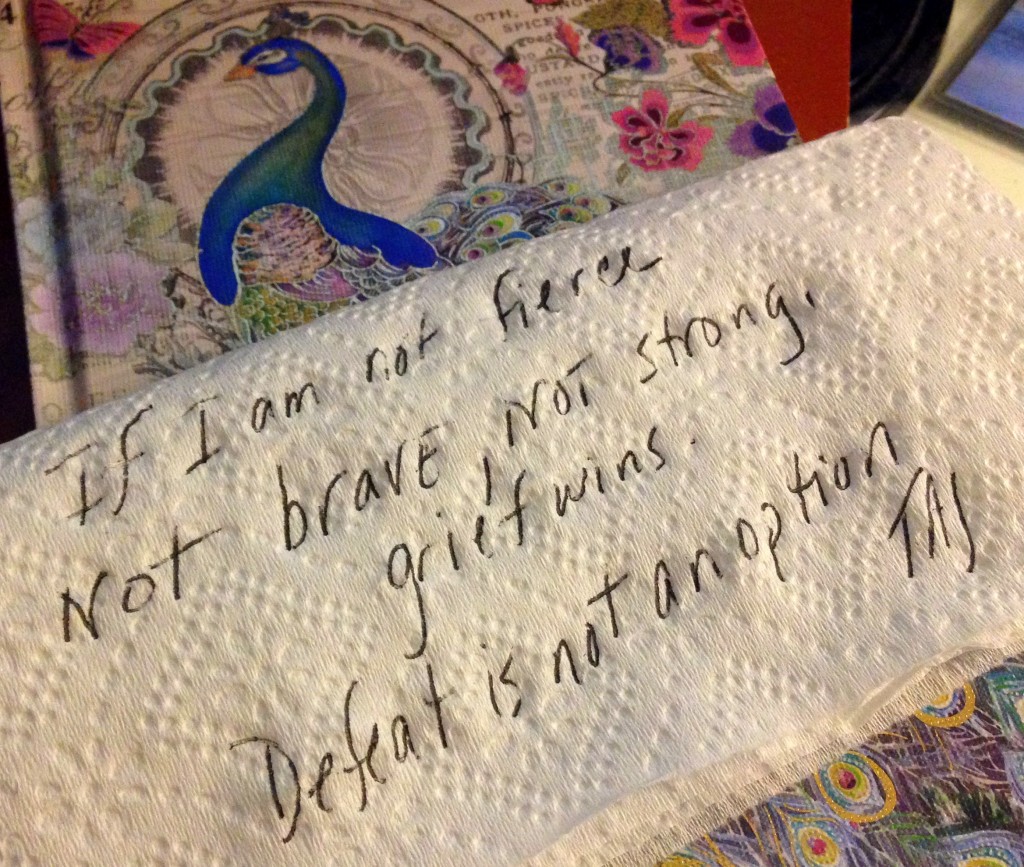 4
OTH,
SPICE
If I am not fierce
Not brave, Not strong.
grief wins.
Defeat is not an option
TAJ